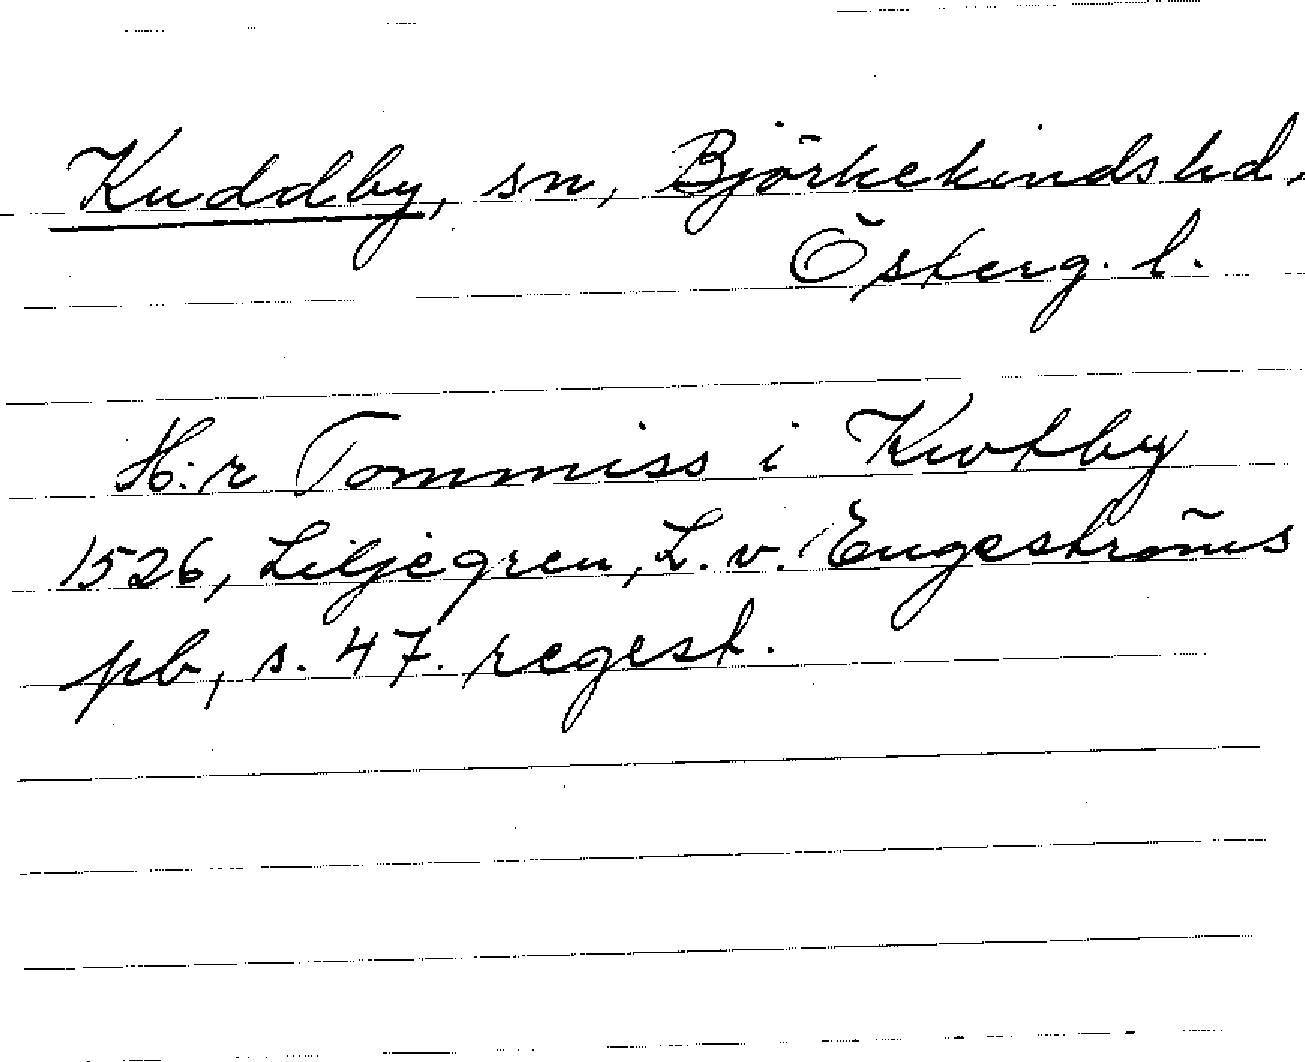 Kuddby, sn, Björkekinds hd,
Österg. l.
H:r Tommiss i Kwtby
1526, Liljegren, L. v. Engeströms
pb, s. 47. regest.